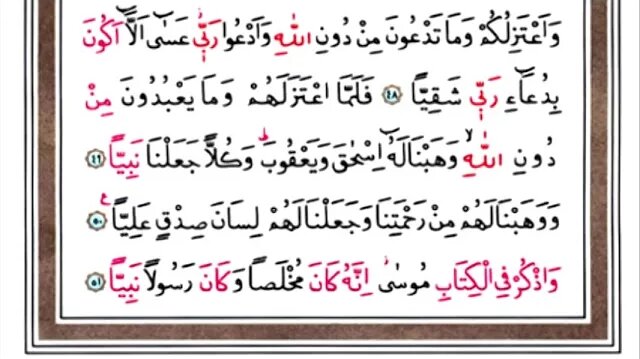 وَاَعْتَزِلُكُمْ وَمَا تَدْعُونَ مِنْ دُونِ اللّٰهِ وَاَدْعُوا رَبّ۪ي عَسٰٓى اَلَّٓا اَكُونَ
بِدُعَٓاءِ رَبّ۪ي شَقِيًّا ﴿٤٨﴾ فَلَمَّا اعْتَزَلَهُمْ وَمَا يَعْبُدُونَ مِنْ
دُونِ اللّٰهِۙ وَهَبْنَا لَهُٓ اِسْحٰقَ وَيَعْقُوبَۜ وَكُلًّا جَعَلْنَا نَبِيًّا ﴿٤٩﴾
وَوَهَبْنَا لَهُمْ مِنْ رَحْمَتِنَا وَجَعَلْنَا لَهُمْ لِسَانَ صِدْقٍ عَلِيًّا ﴿٥٠﴾
وَاذْكُرْ فِي الْكِتَابِ مُوسٰىۘ اِنَّهُ كَانَ مُخْلَصًا وَكَانَ رَسُولًا نَبِيًّا ﴿٥١﴾